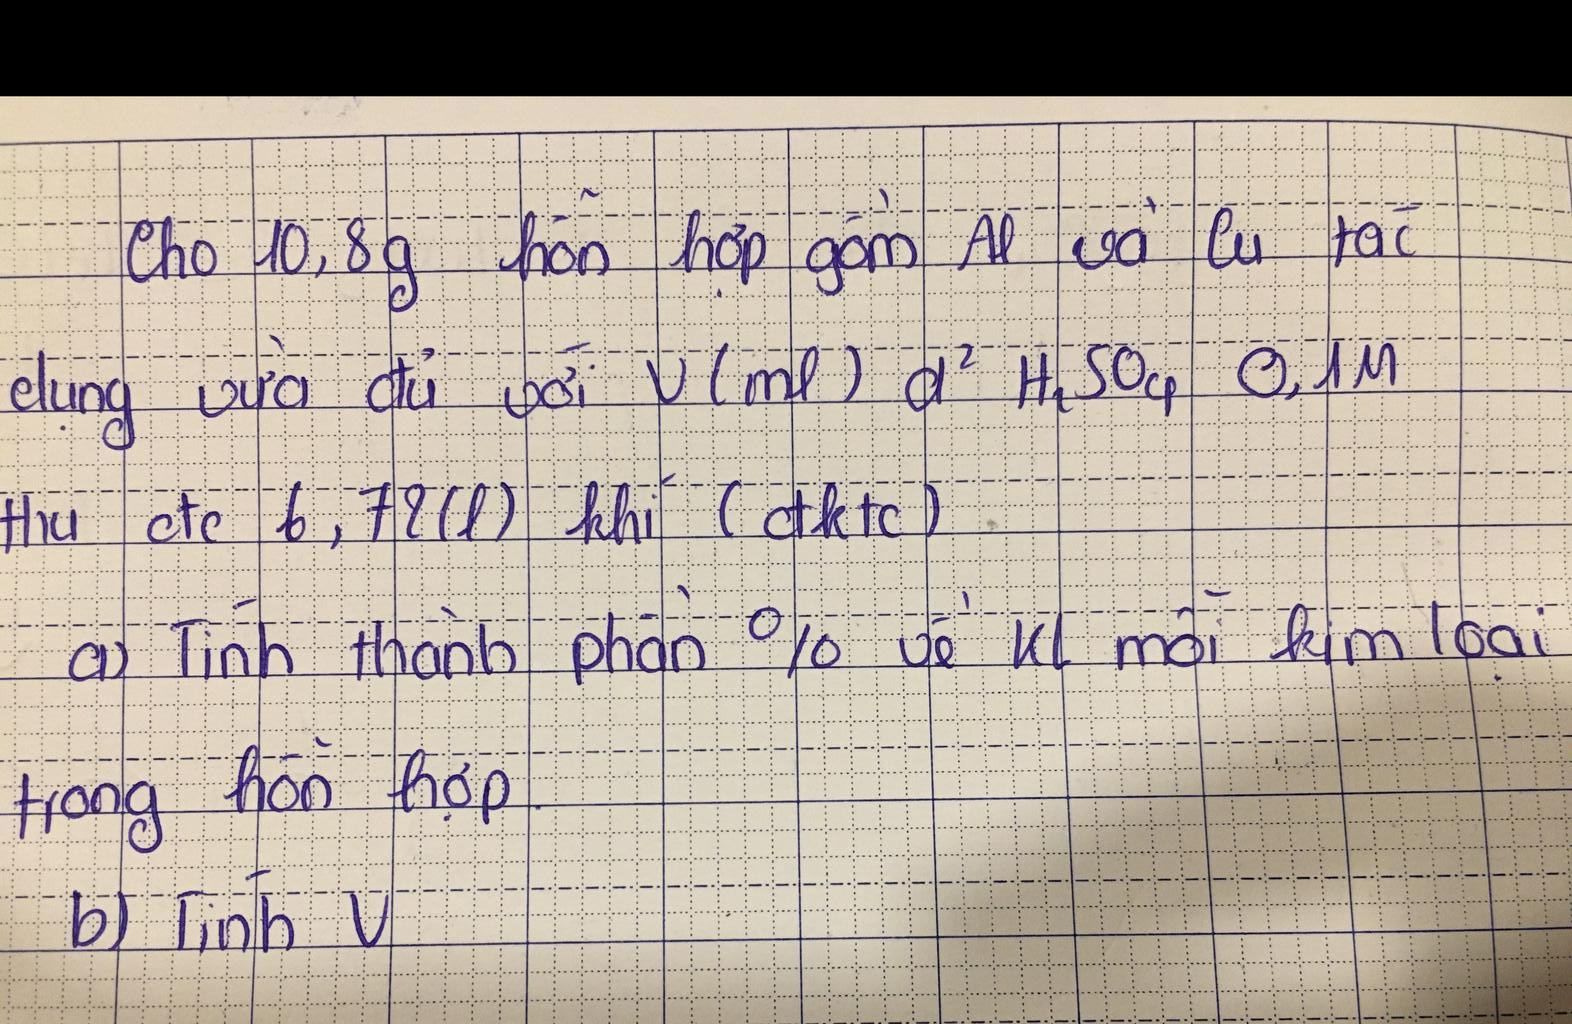 Cho 10,8g hỗn hợp gồm Al và Cu tác
dụng vừa đủ với V (ml) d² H₂SO₄ 0,1M
thu đc 6,72(l) khí (đktc)
a) Tính thành phần % về KL mỗi kim loại
trong hỗn hợp.
b) Tính V